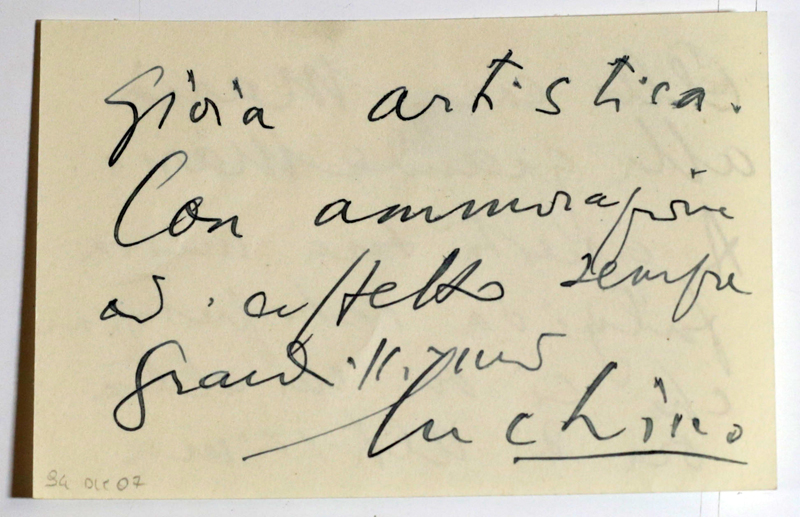 gioia artistica.
Con ammirazione
ed affetto sempre
grandissimo
Luchino
94 DIC 07